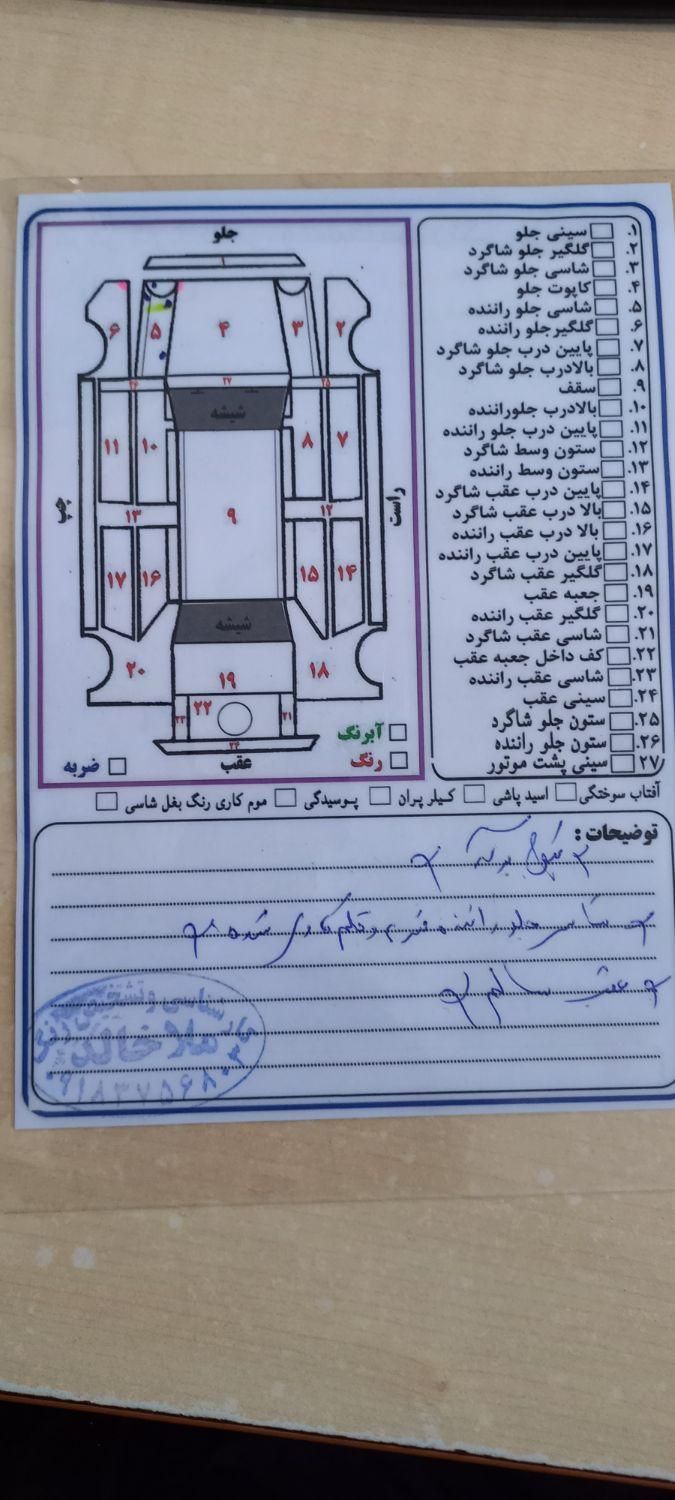 جلو
۱
۲
۳
۴
۵
۶
۲۷
۲۵
۲۶
شیشه
۷
۸
۱۰
۱۱
چپ
راست
۹
۱۲
۱۳
۱۴
۱۵
۱۶
۱۷
شیشه
۱۸
۱۹
۲۰
۲۱
۲۲
۲۳
۲۴
عقب
آبرنگ
رنگ
ضربه
۱. سینی جلو
۲. گلگیر جلو شاگرد
۳. شاسی جلو شاگرد
۴. کاپوت جلو
۵. شاسی جلو راننده
۶. گلگیرجلو راننده
۷. پایین درب جلو شاگرد
۸. بالادرب جلو شاگرد
۹. سقف
۱۰. بالادرب جلوراننده
۱۱. پایین درب جلو راننده
۱۲. ستون وسط شاگرد
۱۳. ستون وسط راننده
۱۴. پایین درب عقب شاگرد
۱۵. بالا درب عقب شاگرد
۱۶. بالا درب عقب راننده
۱۷. پایین درب عقب راننده
۱۸. گلگیر عقب شاگرد
۱۹. جعبه عقب
۲۰. گلگیر عقب راننده
۲۱. شاسی عقب شاگرد
۲۲. کف داخل جعبه عقب
۲۳. شاسی عقب راننده
۲۴. سینی عقب
۲۵. ستون جلو شاگرد
۲۶. ستون جلو راننده
۲۷. سینی پشت موتور
آفتاب سوختگی اسید پاشی کیلر پران پوسیدگی موم کاری رنگ بغل شاسی
توضیحات :
شاسی جلو راننده و قلم کاری شده
عقب سالم